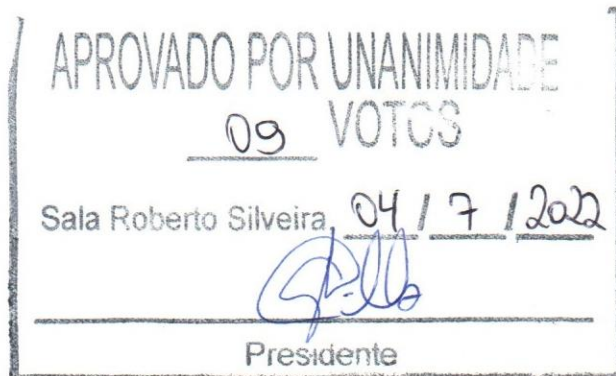 APROVADO POR UNANIMIDADE
09 VOTOS
Sala Roberto Silveira, 04 / 7 / 2022
Presidente